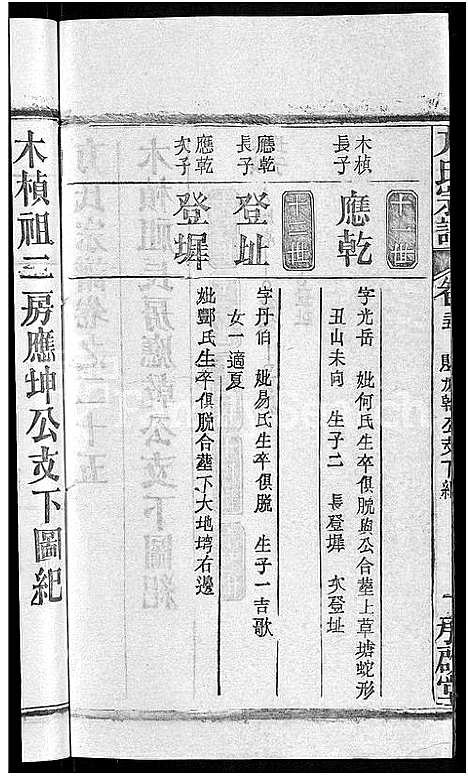 十一世
木楨長子
應乾
字光岳 妣何氏生卒俱脫與公合塟上草塘蛇形
丑山未向 生子二 長登墀 次登址
十二世
應乾長子
登址
字丹伯 妣易氏生卒俱脫 生子一吉歌
女一適夏
應乾次子
登墀
妣酆氏生卒俱脫合塟下大地塆右邊
木楨祖二房應坤公支下圖紀